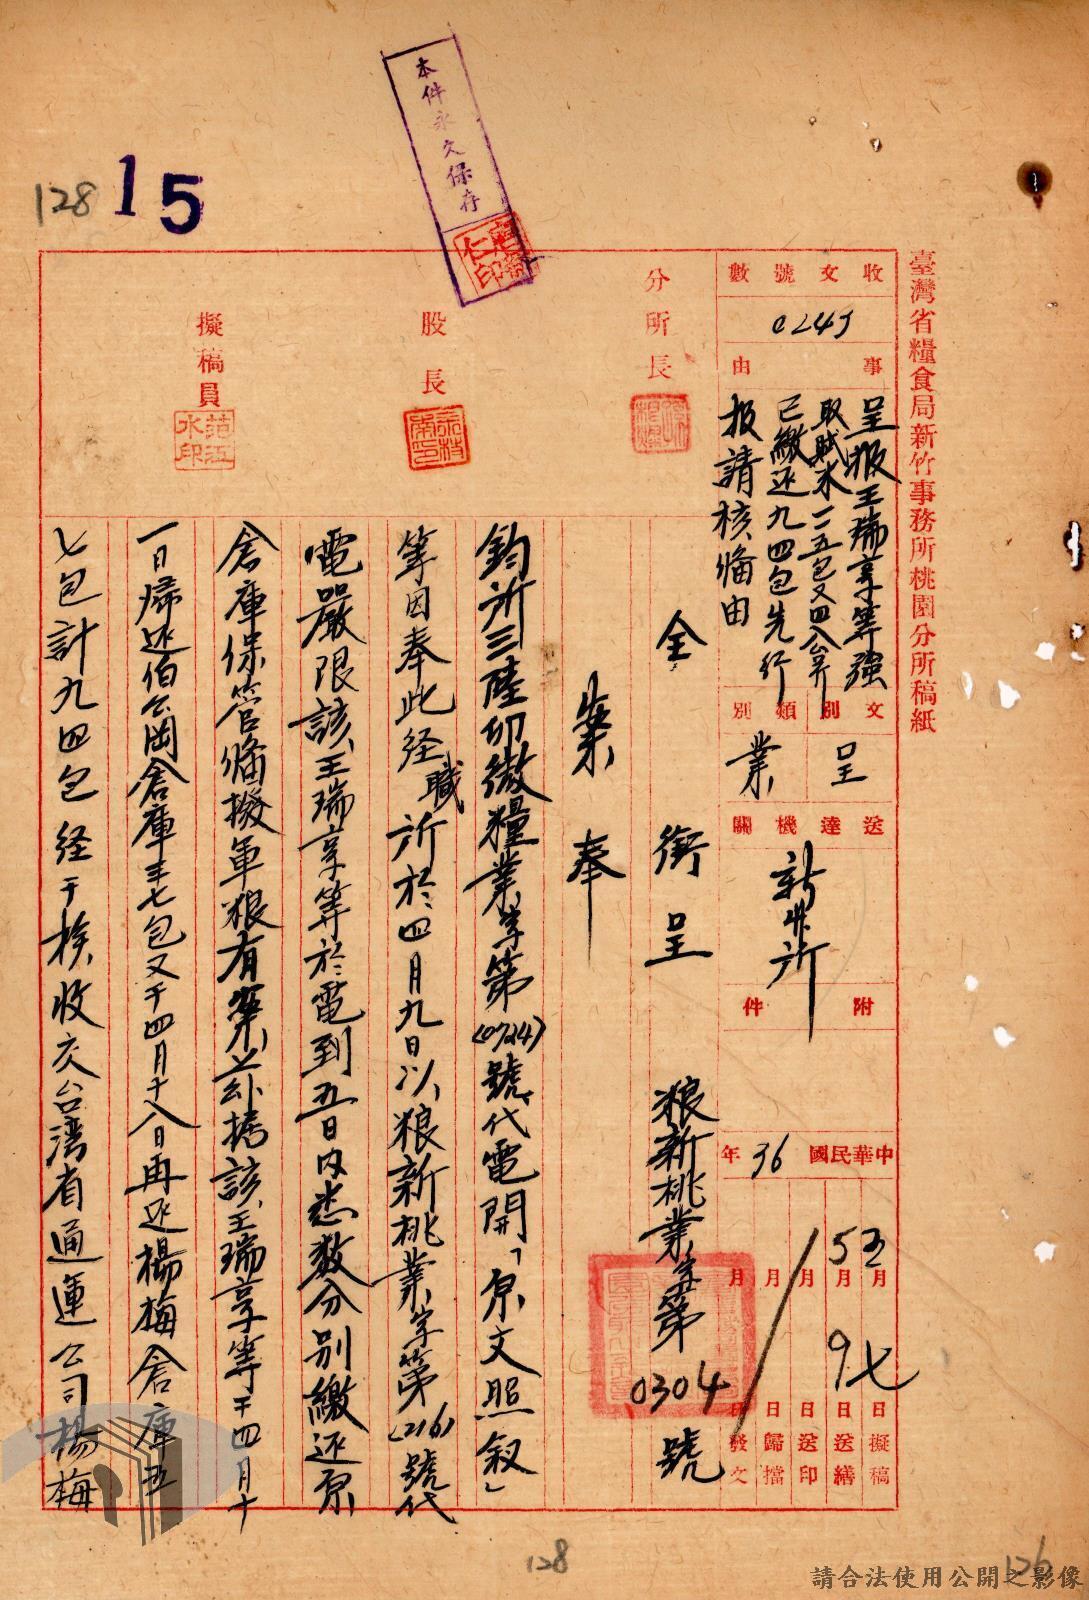 臺灣省糧食局新竹事務所桃園分所稿紙
本件永久保存
128
15
收文號數
0245
事由
呈报王瑞享等強
取賦米一一五包又四八公斤
已繳还九四包先行
报請核偹由
文別
呈
類別
業
送達機關
新竹所
附件
中華民國36年
五月七日擬稿
5月9日送繕
月日送印
月日歸擋
月日發文
分所長
股長
擬稿員
范江水印
全銜呈 粮新桃業字第0304號
案奉
鈞所三陸卯微糧業字第(0724)號代電開「原文照叙」
等因奉此経職所於四月九日以粮新桃業字第(216)號代
電嚴限該王瑞享等於電到五日内悉数分别繳还原
倉庫保管偹撥軍粮有案兹據該王瑞享等于四月十
一日歸还伯公岡倉庫丰七包又于四月十八日再还楊梅倉庫五
七包計九四包経于檢收交台湾省通運公司楊梅
128
126
請合法使用公開之影像